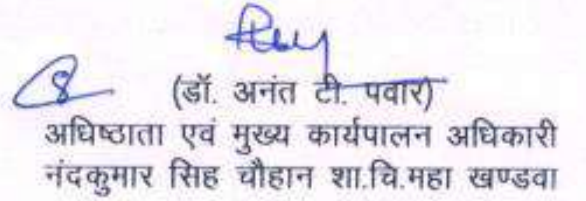 (डॉ. अनंत टी. पवार)
अधिष्ठाता एवं मुख्य कार्यपालन अधिकारी
नंदकुमार सिह चौहान शा.चि.महा खण्डवा